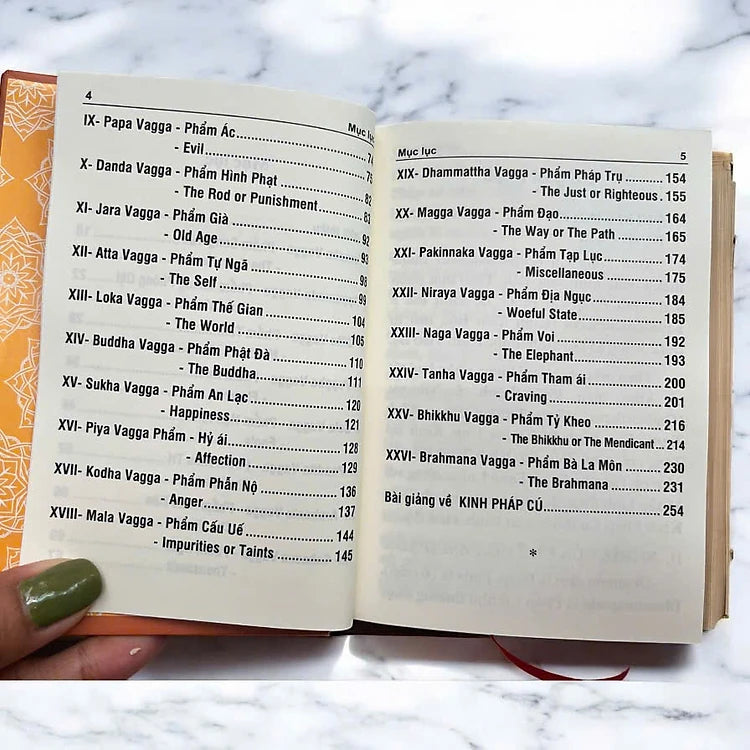 4
Mục lục
IX- Papa Vagga - Phẩm Ác
- Evil
X- Danda Vagga - Phẩm Hình Phạt 82
- The Rod or Punishment 83
XI- Jara Vagga - Phẩm Già 92
- Old Age 93
XII- Atta Vagga - Phẩm Tự Ngã 98
- The Self 99
XIII- Loka Vagga - Phẩm Thế Gian 104
- The World 105
XIV- Buddha Vagga - Phẩm Phật Đà 110
- The Buddha 111
XV- Sukha Vagga - Phẩm An Lạc 120
- Happiness 121
XVI- Piya Vagga Phẩm - Hỷ ái 128
- Affection 129
XVII- Kodha Vagga - Phẩm Phẫn Nộ 136
- Anger 137
XVIII- Mala Vagga - Phẩm Cấu Uế 144
- Impurities or Taints 145
Mục lục 5
XIX- Dhammattha Vagga - Phẩm Pháp Trụ 154
- The Just or Righteous . 155
XX- Magga Vagga - Phẩm Đạo 164
- The Way or The Path 165
XXI- Pakinnaka Vagga - Phẩm Tạp Lục 174
- Miscellaneous 175
XXII- Niraya Vagga - Phẩm Địa Ngục 184
- Woeful State 185
XXIII- Naga Vagga - Phẩm Voi 192
- The Elephant 193
XXIV- Tanha Vagga - Phẩm Tham ái 200
- Craving 201
XXV- Bhikkhu Vagga - Phẩm Tỷ Kheo 216
- The Bhikkhu or The Mendicant 214
XXVI- Brahmana Vagga - Phẩm Bà La Môn 230
- The Brahmana 231
Bài giảng về KINH PHÁP CÚ 254
*